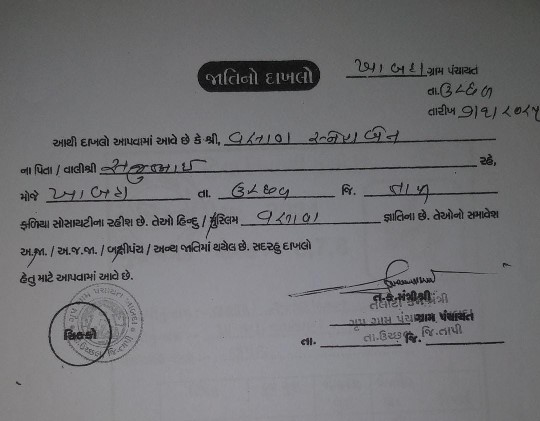 જાતિનો દાખલો
આબદા ગ્રામ પંચાયત
તા. ઉચ્છલ
તારીખ
આથી દાખલો આપવામાં આવે છે કે શ્રી, વસાવા
ના પિતા / વાલીશ્રી રાજુભાઈ રહે,
મોજે આબદા તા. ઉચ્છલ જિ. તાપી
ફળિયા સોસાયટીના રહીશ છે. તેઓ હિન્દુ / મુસ્લિમ વસાવા જ્ઞાતિના છે. તેઓનો સમાવેશ
અ.જા. / અ.જ.જા. / બક્ષીપંચ / અન્ય જાતિમાં થયેલ છે. સદરહુ દાખલો
હેતુ માટે આપવામાં આવે છે.
ત.ક.મંત્રીશ્રી
ગ્રામ પંચાયત
તા. જિ.
તા.ઉચ્છલ જિ.તાપી
સિક્કો